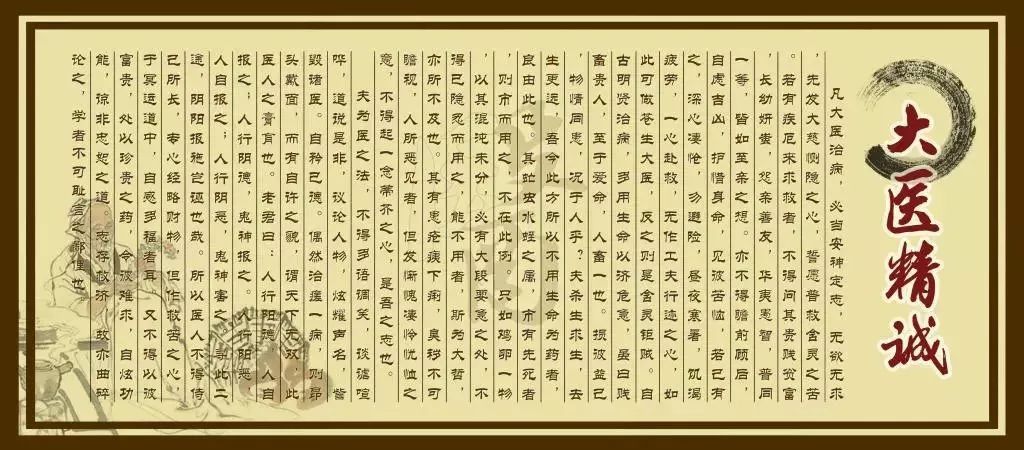 大医精诚
凡大医治病，必当安神定志，无欲无求
，先发大慈恻隐之心，誓愿普救含灵之苦
。若有疾厄来求救者，不得问其贵贱贫富
，长幼妍蚩，怨亲善友，华夷愚智，普同
一等，皆如至亲之想。亦不得瞻前顾后，
自虑吉凶，护惜身命，见彼苦恼，若己有
之，深心凄怆，勿避险，昼夜寒暑，饥渴
疲劳，一心赴救，无作工夫行迹之心，如
此可做苍生大医，反之则是含灵钜贼。自
古明贤治病，多用生命以济危急，虽曰贱
畜贵人，至于爱命，人畜一也。损彼益己
，物情同患，况于人乎？夫杀生求生，去
生更远。吾今此方所以不用生命为药者，
良由此也。其虻虫水蛭之属，市有先死者
，则市而用之，不在此例。只如鸡卵一物
，以其混沌未分，必有大段要急之处，不
得已隐忍而用之，能不用者，斯为大哲，
亦所不及也。其有患疮痍下痢，臭秽不可
瞻视，人所恶见者，但发惭愧凄怜忧恤之
意，不得起一念蒂芥之心，是吾之志也。
夫为医之法，不得多语调笑，谈谑喧
哗，道说是非，议论人物，炫耀声名，訾
毁诸医。自矜己德。偶然治瘥一病，则昂
头戴面，而有自许之貌，谓天下无双，此
医人之膏肓也。老君曰：人行阳德，人自
报之；人行阴德，鬼神报之。人行阳恶，
人自报之；人行阴恶，鬼神害之。寻此二
途，阴阳报施岂诬也哉。所以医人不得恃
己所长，专心经略财物，但作救苦之心，
于冥运道中，自感多福者耳。又不得以彼
富贵，处以珍贵之药，令彼难求，自炫功
能，谅非忠恕之道。志存救济，故亦曲碎
论之，学者不可耻言之鄙俚也。